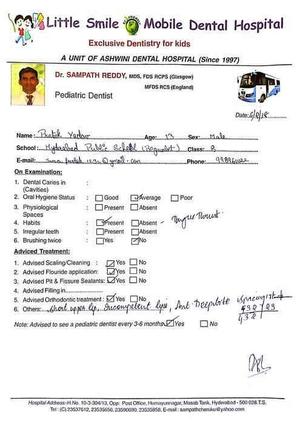 Little Smile Mobile Dental Hospital
Exclusive Dentistry for kids
A UNIT OF ASHWINI DENTAL HOSPITAL (Since 1997)
Dr. SAMPATH REDDY, MDS, FDS RCPS (Glasgow)
MFDS RCS (England)
Pediatric Dentist
Date:
Name: Pratik Yadav Age: 13 Sex: Male
School: Hyderabad Public School Class: 8
E-mail: Phone:
On Examination:
1. Dental Caries in :
(Cavities)
2. Oral Hygiene Status : Good Average Poor
3. Physiological : Present Absent
Spaces
4. Habits : Present Absent - Tongue Thrust
5. Irregular teeth : Present Absent
6. Brushing twice : Yes No
Adviced Treatment:
1. Advised Scaling/Cleaning : Yes No
2. Advised Flouride application: Yes No
3. Advised Pit & Fissure Sealants: Yes No
4. Advised Filling in
5. Advised Orthodontic treatment : Yes No
6. Others: Short upper lip, Incompetent lips, Ant. Deepbite
Note: Advised to see a pediatric dentist every 3-6 months Yes No
Hospital Address-H.No. 10-3-304/13, Opp. Post Office, Humayunnagar, Masab Tank, Hyderabad - 500 028.T.S